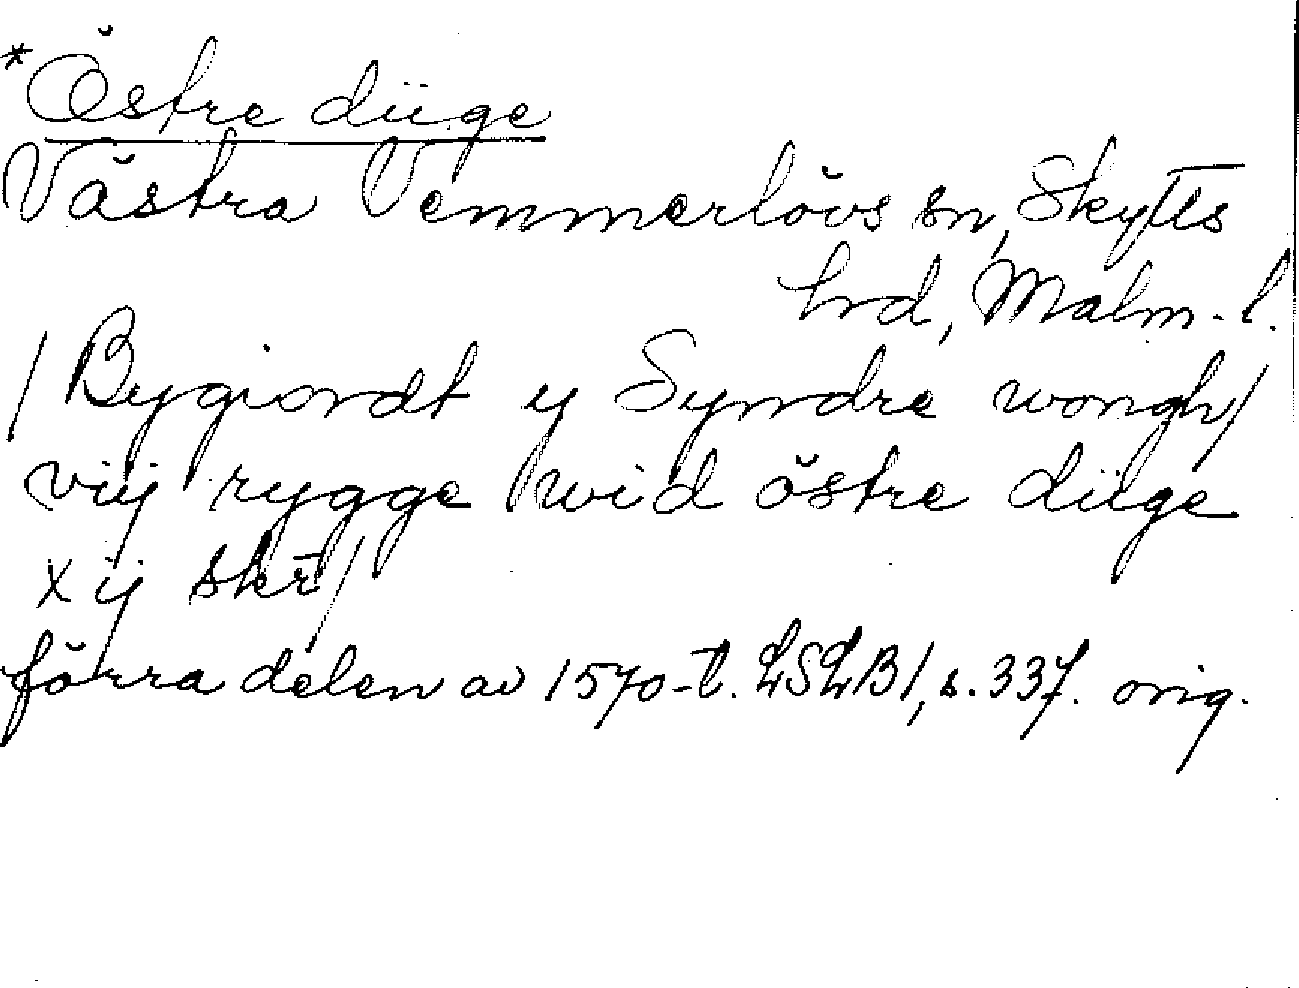 *Östre düge
Västra Vemmerlövs sn, Skytts
hrd, Malm.l.
/Bygiordt y Syndre wongh/
viij rygge wid östre düge
xij skr̄/
förra delen av 1570-t. LSLB1, s. 337. orig.